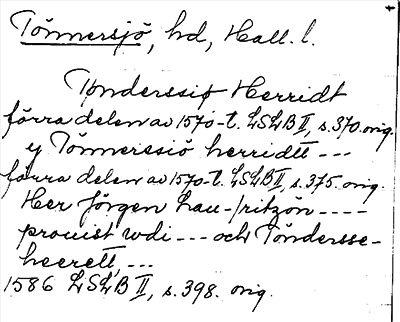 Tönnersjö, hd, Hall. l.
Tønderssiø Herridt
förra delen av 1570-t. LSLB II, s. 370. orig.
y Tönnerssiö herridtt ---
förra delen av 1570-t. LSLB II, s. 375. orig.
Her Jörgen Lau-/ritzön ----
prouist vdi --- och Töndersse-
heerett, ---
1586 LSLB II, s. 398. orig.